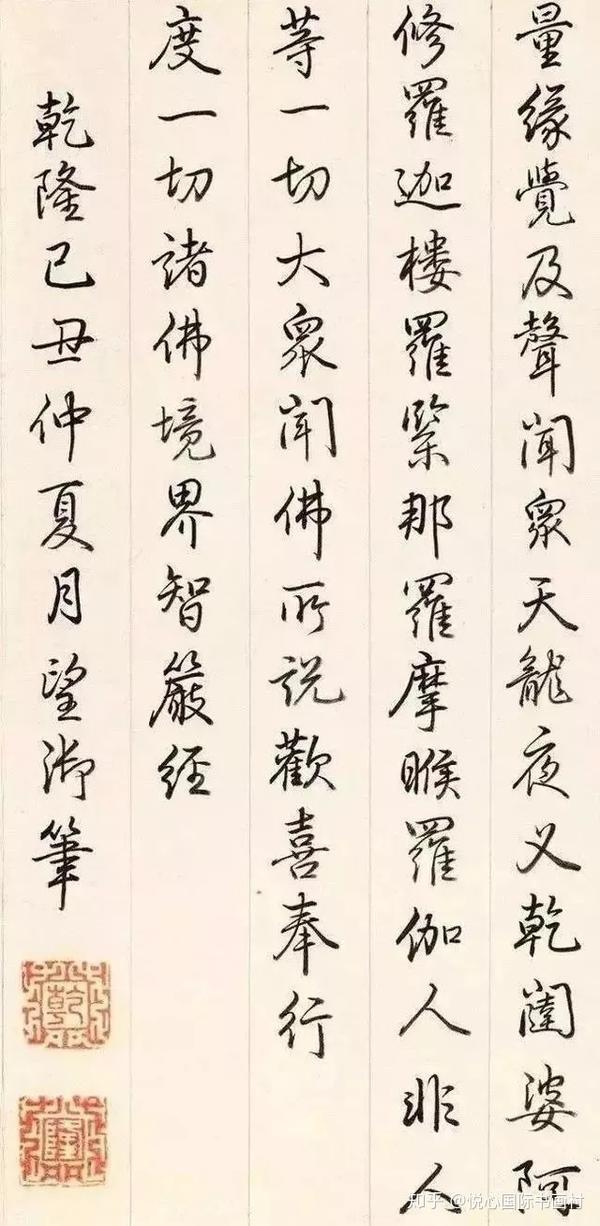 量緣覺及聲聞眾天龍夜叉乾闥婆阿
修羅迦樓羅緊那羅摩睺羅伽人非人
等一切大眾聞佛所說歡喜奉行
度一切諸佛境界智嚴經
乾隆己丑仲夏月望御筆
知乎 @悦心国际书画村